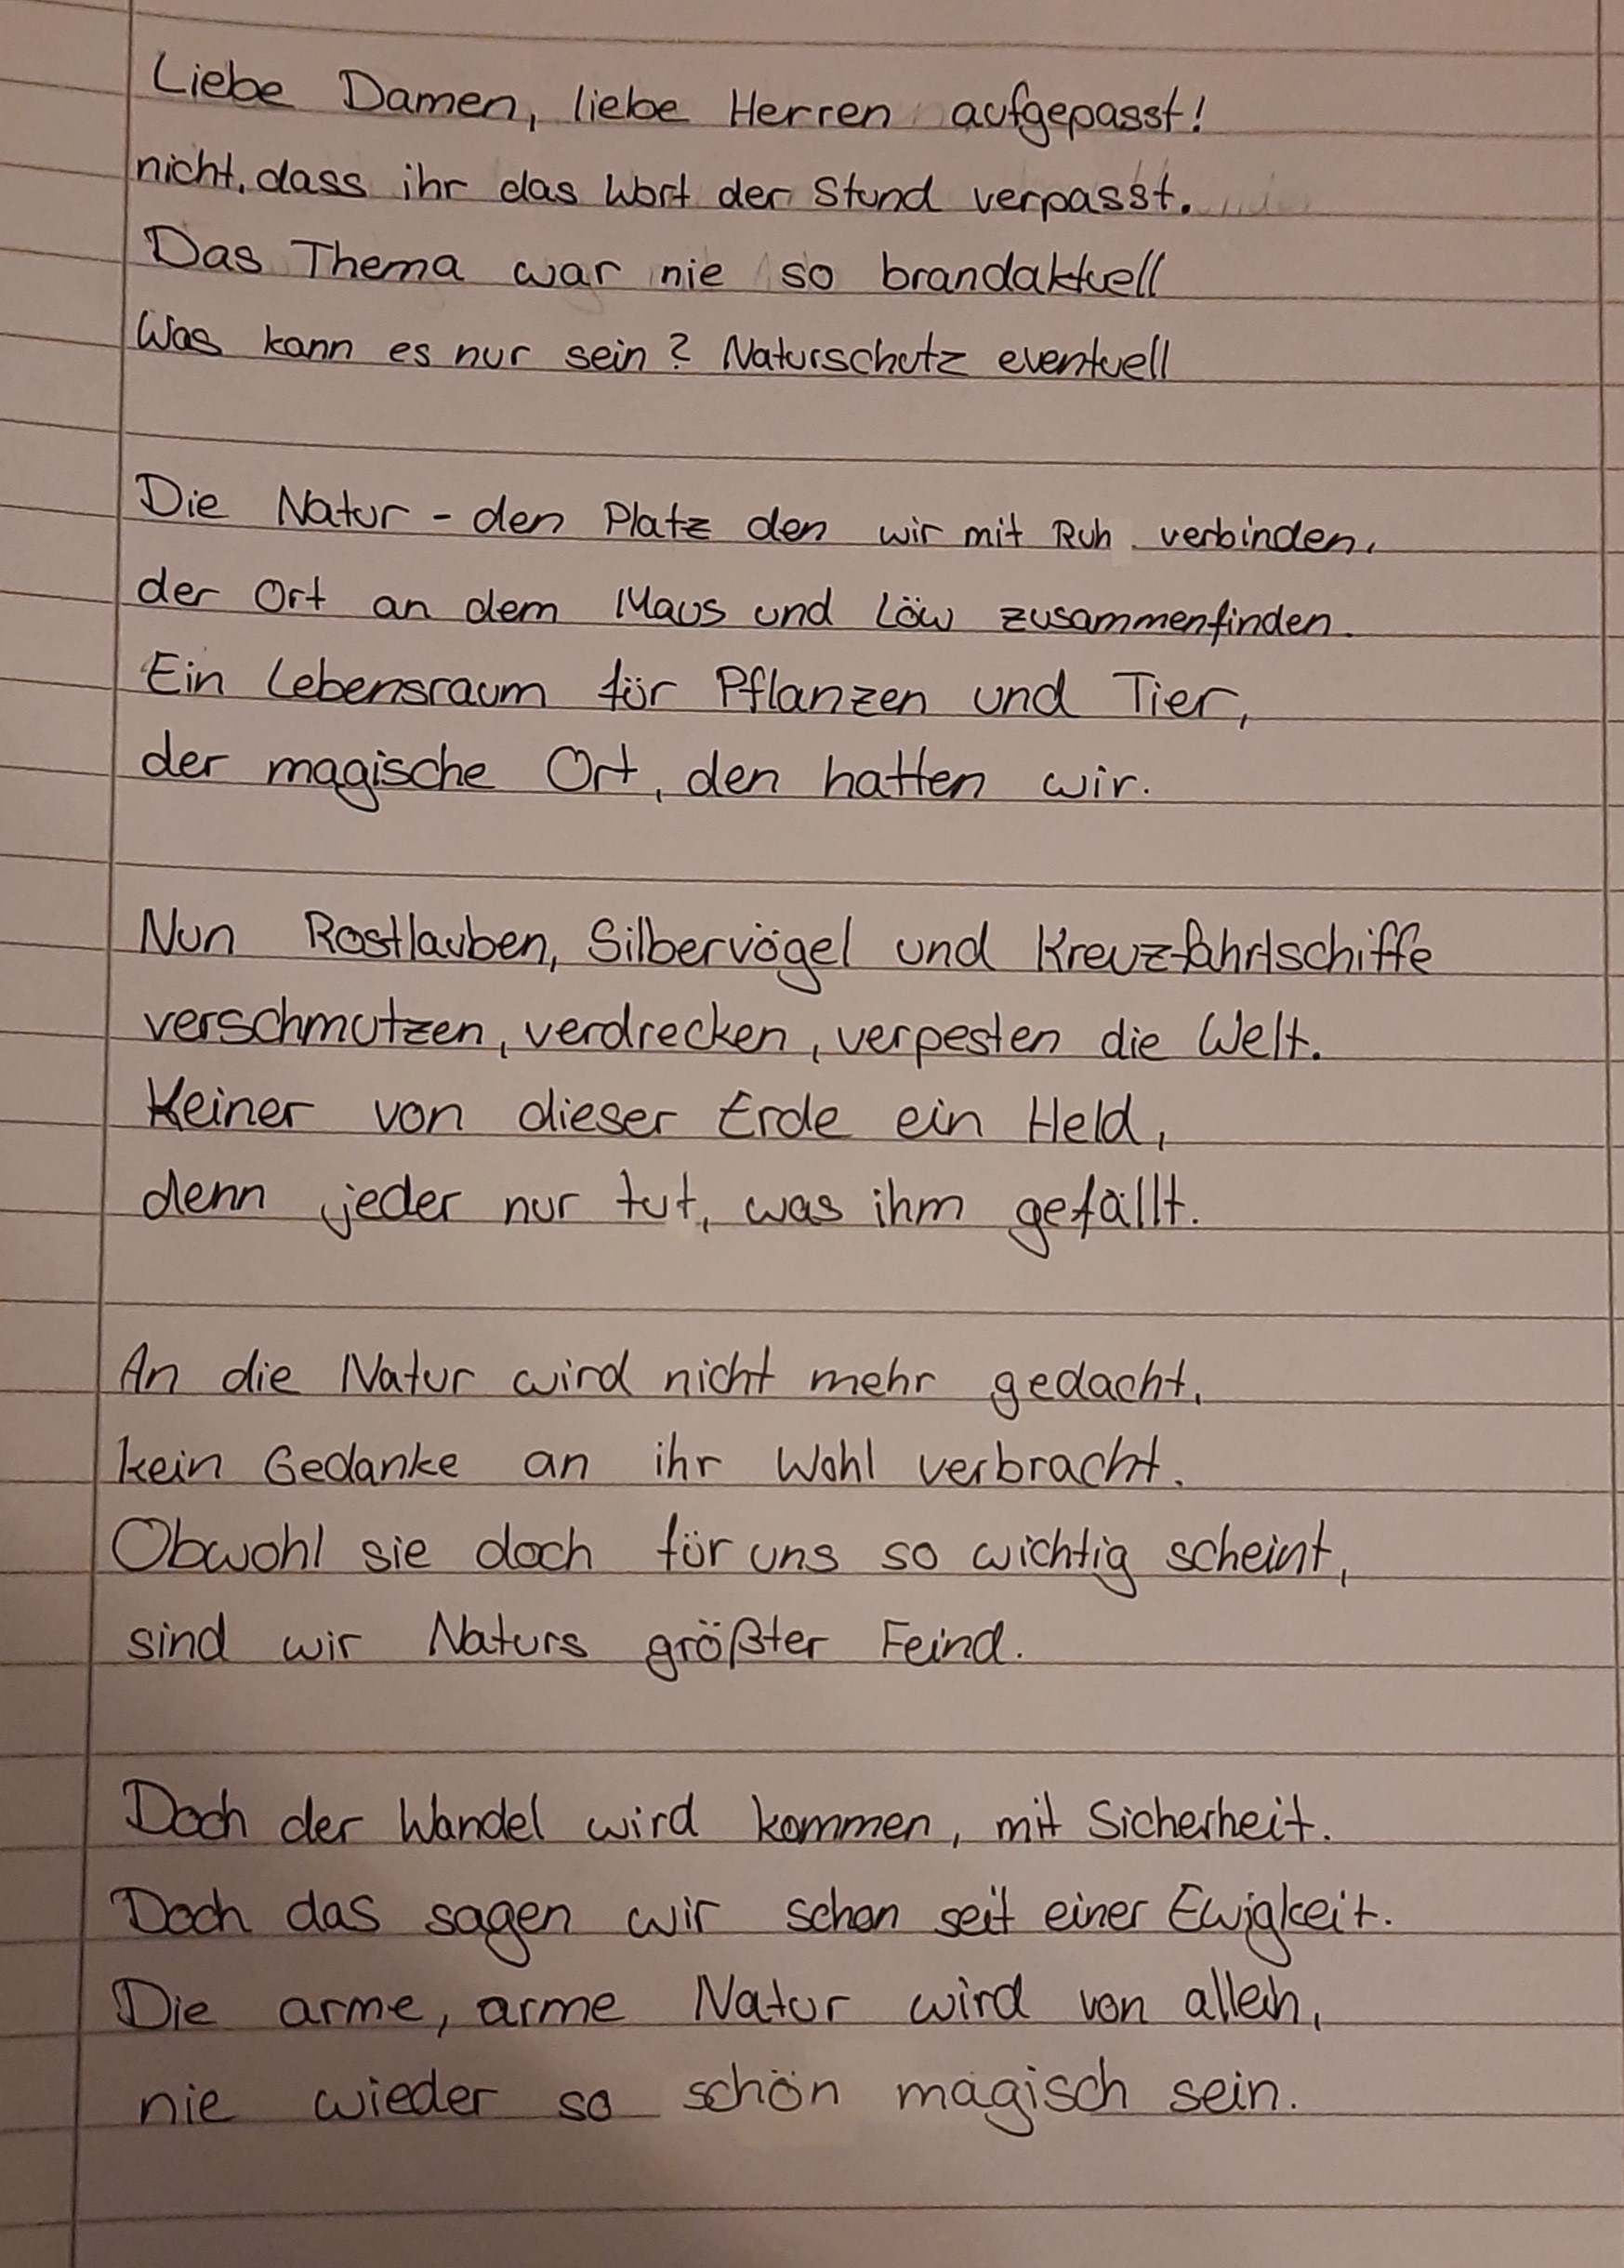 Liebe Damen, liebe Herren aufgepasst!
nicht, dass ihr das Wort der Stund verpasst.
Das Thema war nie so brandaktuell
Was kann es nur sein? Naturschutz eventuell
Die Natur - den Platz den wir mit Ruh verbinden,
der Ort an dem Maus und Löw zusammenfinden.
Ein Lebensraum für Pflanzen und Tier,
der magische Ort, den hatten wir.
Nun Rostlauben, Silbervögel und Kreuzfahrtschiffe
verschmutzen, verdrecken, verpesten die Welt.
Keiner von dieser Erde ein Held,
denn jeder nur tut, was ihm gefällt.
An die Natur wird nicht mehr gedacht,
kein Gedanke an ihr Wohl verbracht.
Obwohl sie doch für uns so wichtig scheint,
sind wir Naturs größter Feind.
Doch der Wandel wird kommen, mit Sicherheit.
Doch das sagen wir schon seit einer Ewigkeit.
Die arme, arme Natur wird von allein,
nie wieder so schön magisch sein.